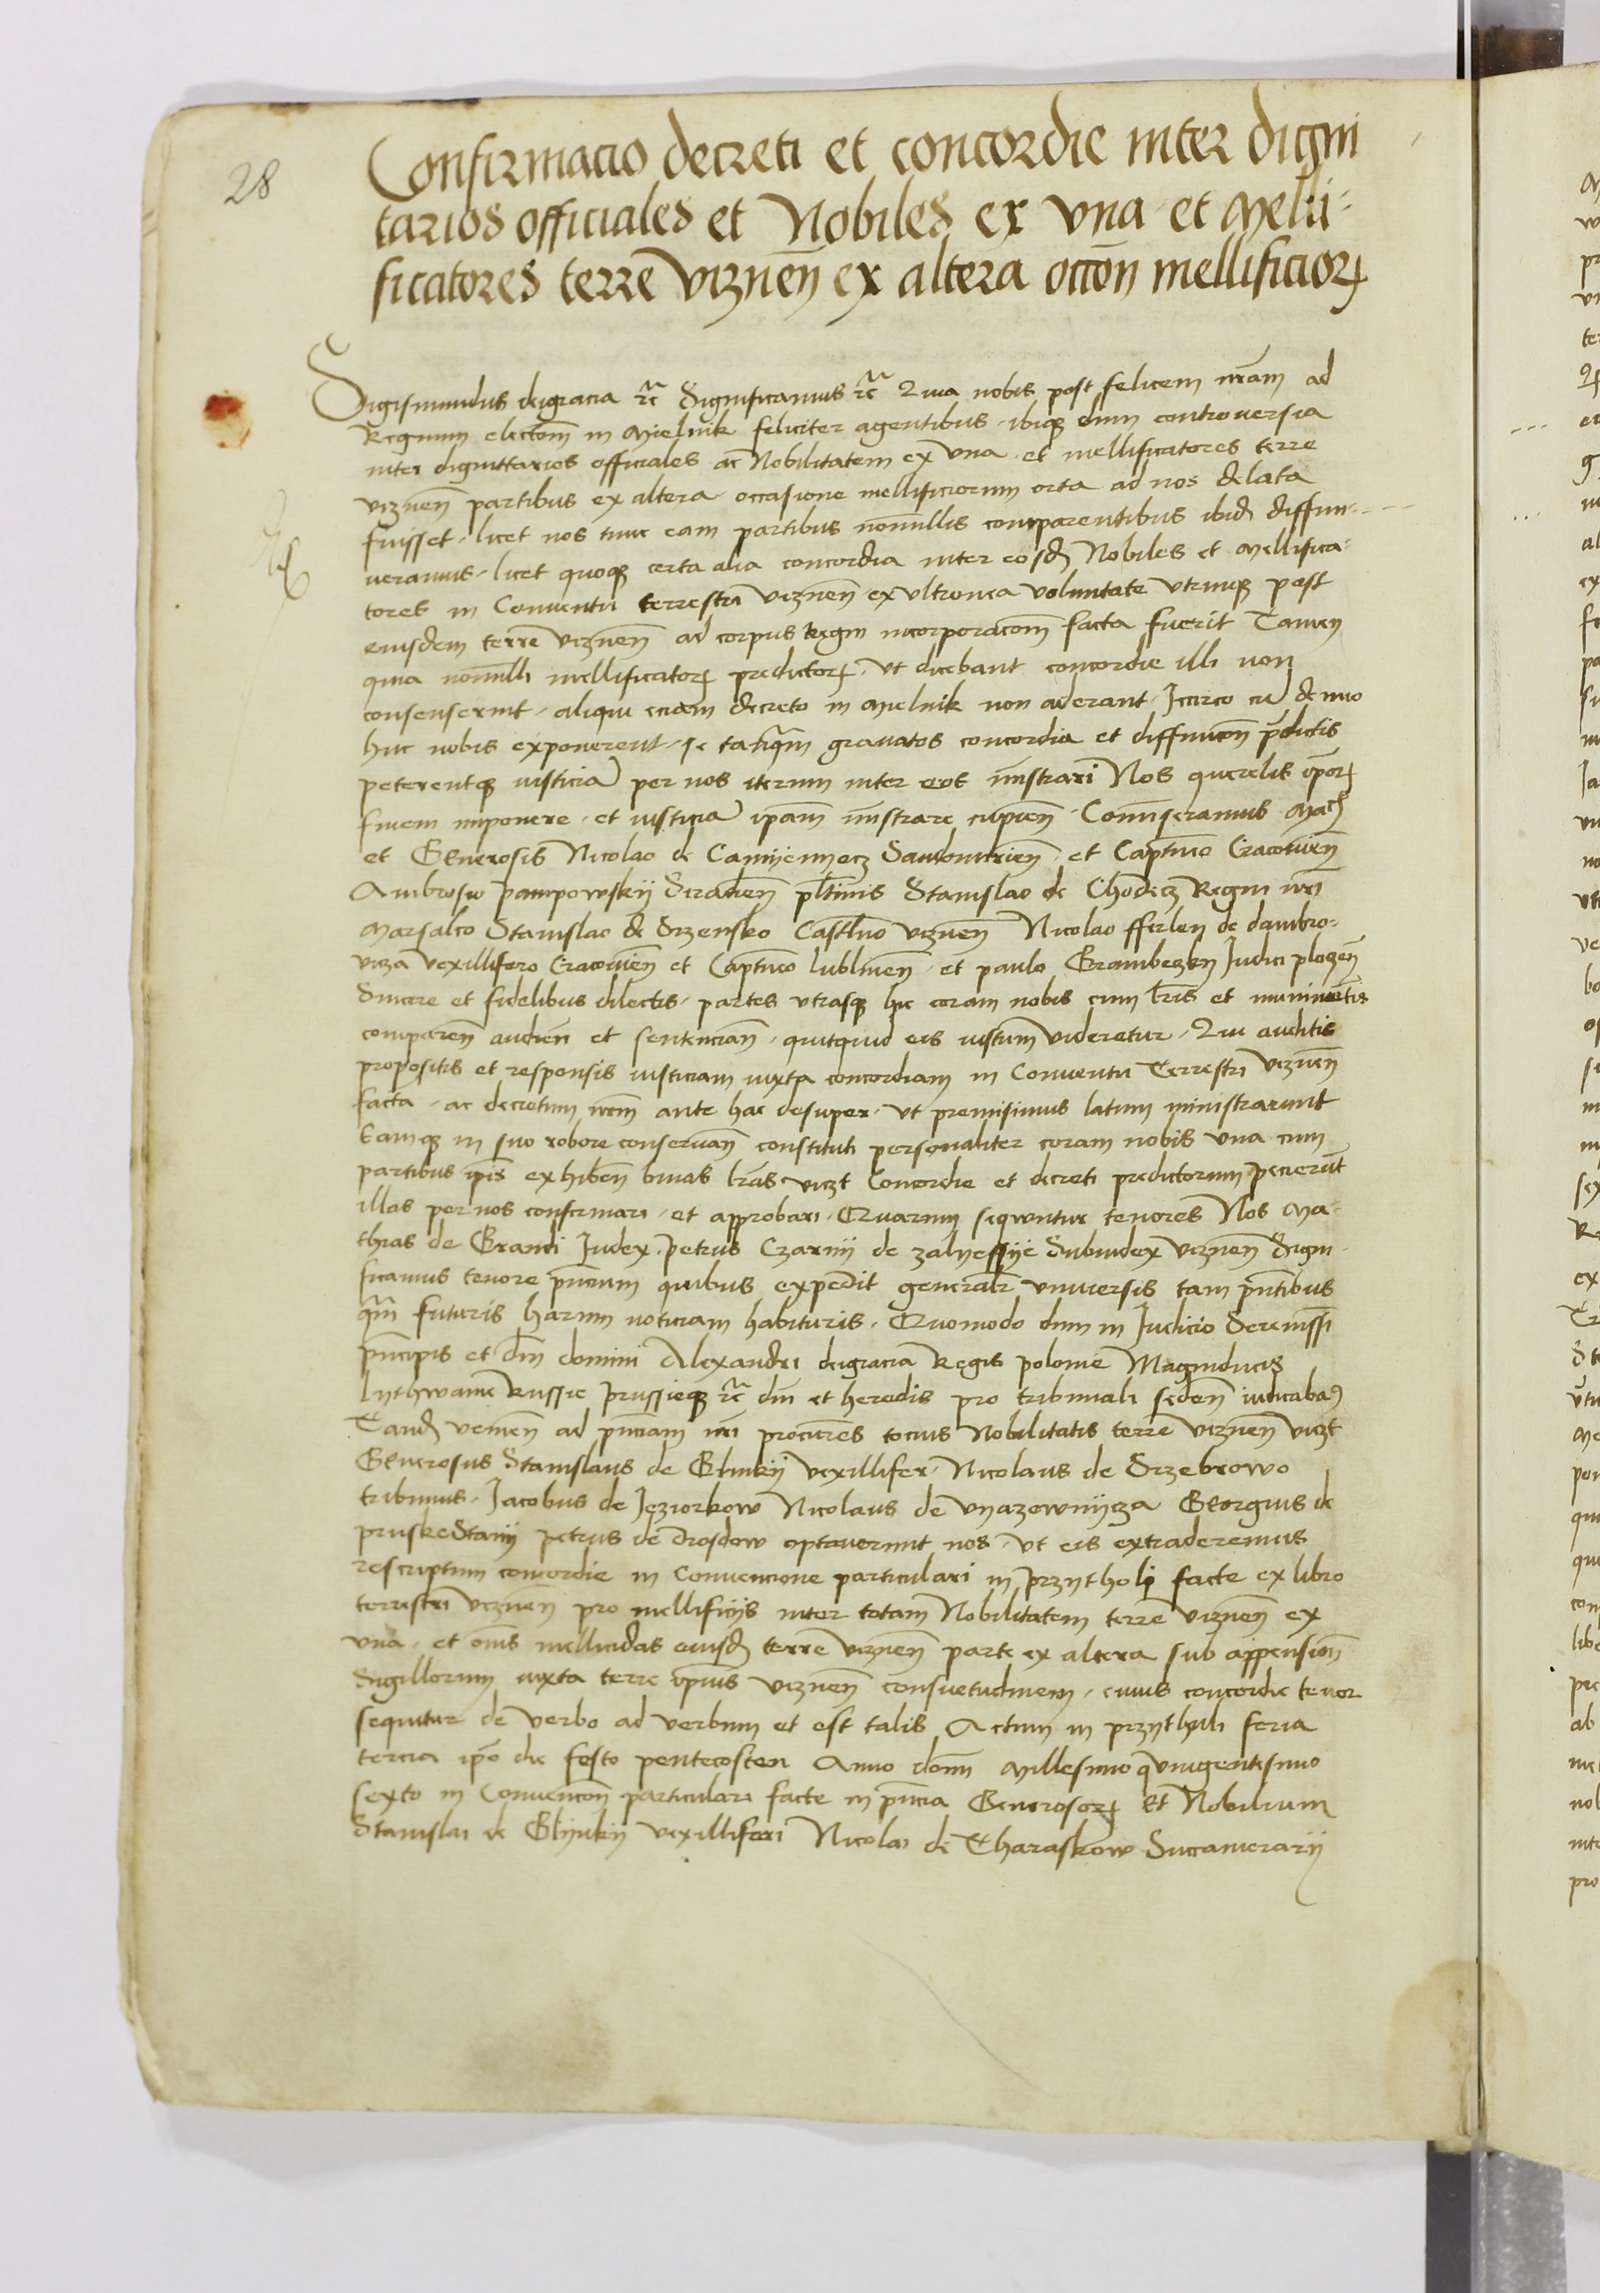 28
Confirmacio decreti et concordie inter digni
tarios officiales et Nobiles ex vna et Melli-
ficatores terre Vizneñ ex altera occōn mellificiorꝝ
Sigismundus deigracia ꝛc̄ Significamus ꝛc̄ Quia nobis post felicem nr̄am ad
Regnum electōm in Mielnik feliciter agentibus ibiqꝫ dum controversia
inter dignittarios officiales ac Nobilitatem ex vna et mellificatores terre
vizneñ partibus ex altera occasione mellificiorum orta ad nos delata
fuisset licet nos tunc eam partibus nōnullis comparentibus ibidꝫ diffini-
veramus licet quoqꝫ certa alia concordia inter eosdꝫ Nobiles et mellifica-
tores in Conventu terrestri vizneñ ex vltronea voluntate vtriusqꝫ post
eiusdem terre vizneñ ad corpus Regni incorporacōm facta fuerit Tamen
quia nōnulli mellificatorꝝ predictorꝝ vt dicebant concordie illi non
consenserint aliqui eciam decreto in mielnik non aderant Iccirco cū denuo
huc nobis exponerent se tanqm̄ gravatos concordia et diffinicōn p̄dictis
peterentqꝫ iusticiā per nos iterum inter eos mīstrari Nos querelis ip̄orꝝ
finem imponere et iusticiā ipam̄ mīstrare cupieñ Commiseramus Mache
et Generosis Nicolao de Camyenyecz Sandomirieñ et Captneo Cracovieñ
Ambrosio pampowskij Siradieñ pltinis Stanislao de Chodecz Regni nr̄i
Marsalco Stanislao de Srzensko Castlno vizneñ Nicolao ffirlen de dambro-
vicza vexillifero Cracovieñ et Captneo lublineñ et paulo Grambczkj Iudici ploczeñ
Sincere et fidelibus dilectis partes vtrasqꝫ hic coram nobis cum lr̄is et munimentis
compareñ audieñ et sentenciañ quitquid eis iustum videretur Qui auditis
propositis et responsis iusticiam iuxta concordiam in Conventu Terrestri vizneñ
facta ac decretum nrm̄ ante hac desuper vt premisimus latum ministrarunt
Eamqꝫ in suo robore conservañ constituti personaliter coram nobis vna cum
partibus ip̄is exhibeñ binas lr̄as viczt Concordie et decreti predictorum pecierūt
illas per nos confirmari et approbari Quarum sequuntur tenores Nos Ma-
thias de Grandi Iudex petrus Czarnij de zalyessije Subiudex vizneñ Signi-
ficamus tenore p̄ncium quibus expedit generalr̄ vniversis tam p̄ntibus
qm̄ futuris harum noticiam habituris Quomodo dum in Iudicio Serenissi
p̄ncipis et dm̄ domini Alexandri deigracia Regis polonie Magniducis
lythwanie Russie prussieqꝫ ꝛc̄ dm̄ et heredis pro tribunali sedeñ iudicabaꝫ
Tandꝫ venieñ ad p̄nciam nr̄i proceres tocius Nobilitatis terre vizneñ viczt
Generosus Stanislaus de Glinkij vexillifer Nicolaus de Srzebrowo
tribunus Iacobus de Jeziorkow Nicolaus de vnazewnijcza Georgius de
pruskeStanij petrus de Drosdow optaverunt nos vt eis extraderemus
rescriptum concordie in Convencione particulari in przytholi facte ex libro
terrestri vizneñ pro mellificijs inter totam Nobilitatem terre vizneñ ex
vna et om̄s mellicidas eiusdꝫ terre vizneñ parte ex altera sub appensioñ
Sigillorum iuxta terre ip̄ius vizneñ consuetudinem cuius concordie tenor
sequitur de verbo ad verbum et est talis Actum in przythuli feria
tercia ip̄o die festo pentecosten Anno domī Millesimo quingentesimo
sexto in Convencōn particulari facte in p̄ncia Generosorꝝ Et Nobilium
Stanislai de Glynkij vexilliferi Nicolai de Tharaskow Succamerarij